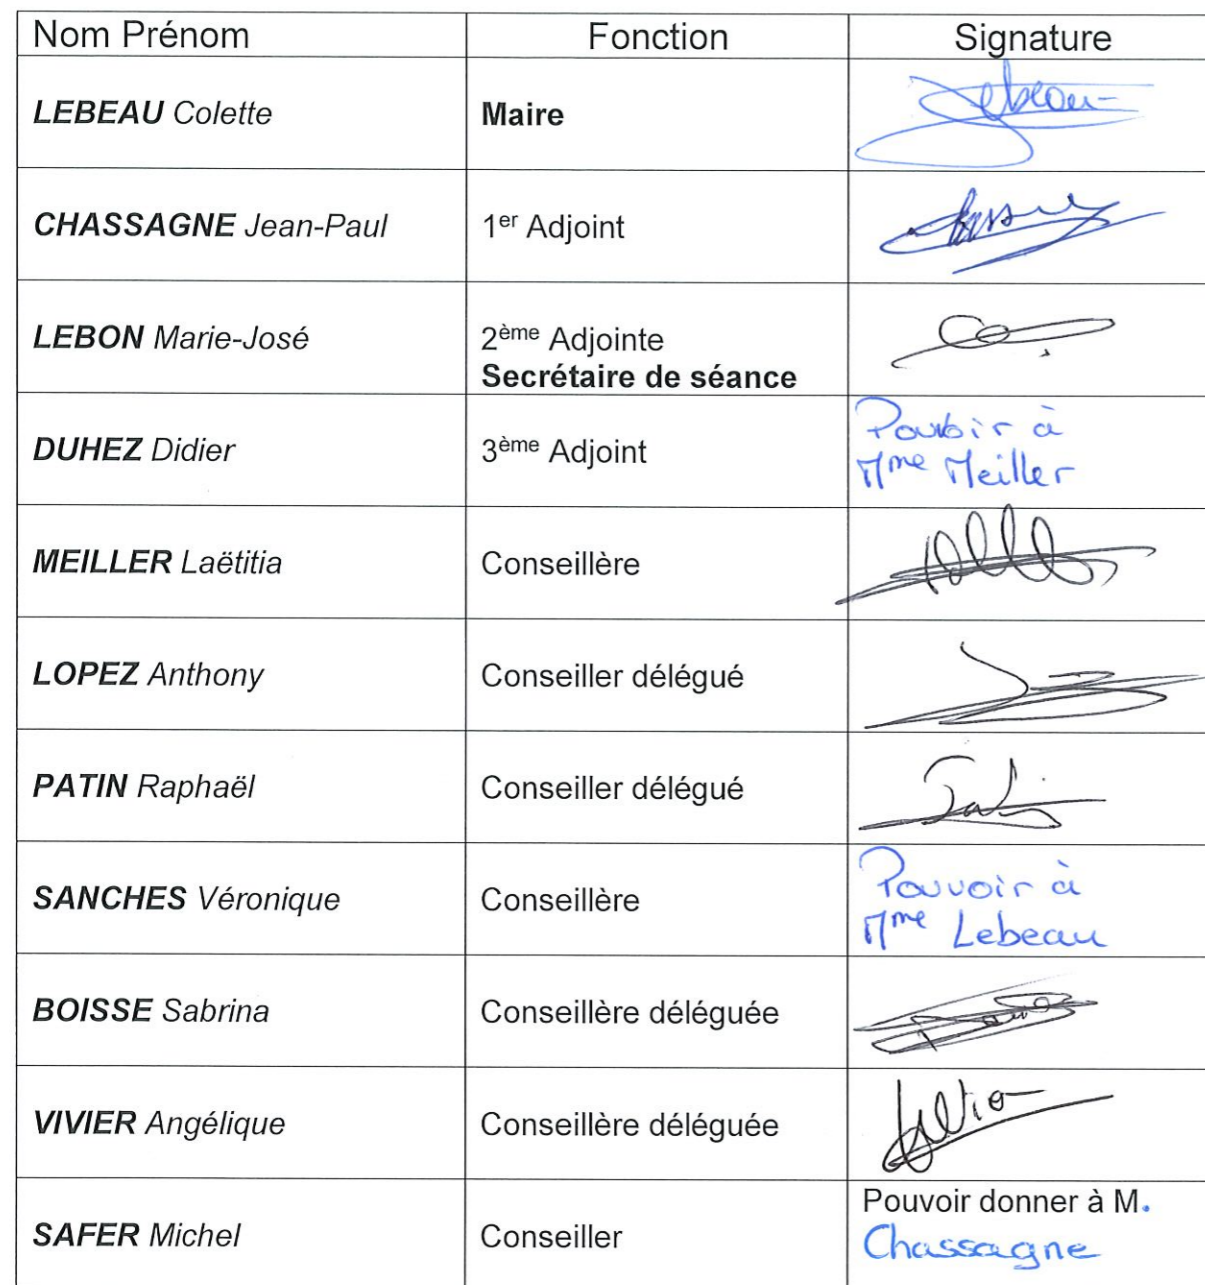 Nom Prénom Fonction Signature
LEBEAU Colette Maire Lebeau
CHASSAGNE Jean-Paul 1er Adjoint
LEBON Marie-José 2ème Adjointe
Secrétaire de séance
DUHEZ Didier 3ème Adjoint Pouvoir à
Mme Meiller
MEILLER Laëtitia Conseillère
LOPEZ Anthony Conseiller délégué
PATIN Raphaël Conseiller délégué
SANCHES Véronique Conseillère Pouvoir à
Mme Lebeau
BOISSE Sabrina Conseillère déléguée
VIVIER Angélique Conseillère déléguée
SAFER Michel Conseiller Pouvoir donner à M.
Chassagne